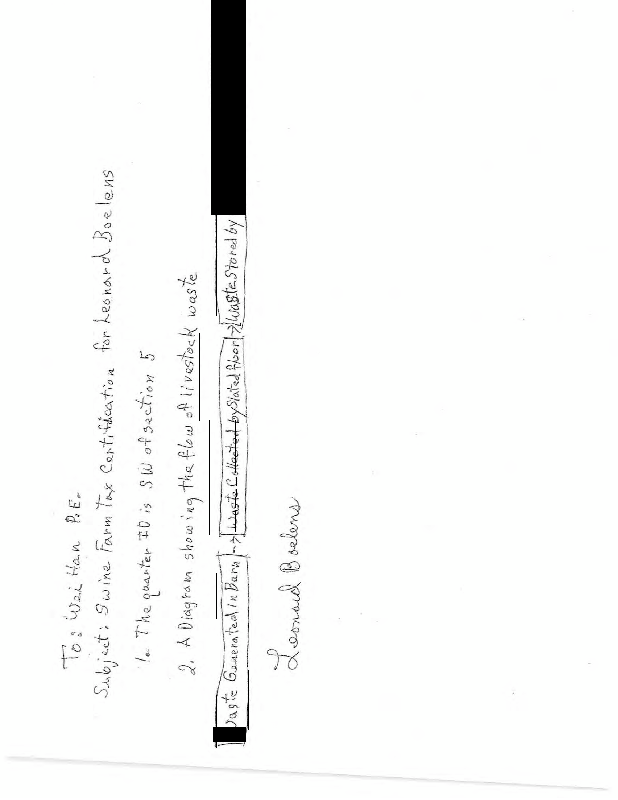 To: Wei Han P.E.
Subject: Swine Farm Tax Certification for Leonard Boelens
1. The quarter ID is SW of section 5
2. A Diagram showing the flow of livestock waste
Waste Generated in Barn -> Waste Collected by Slated floor -> Waste Stored by
Leonard Boelens